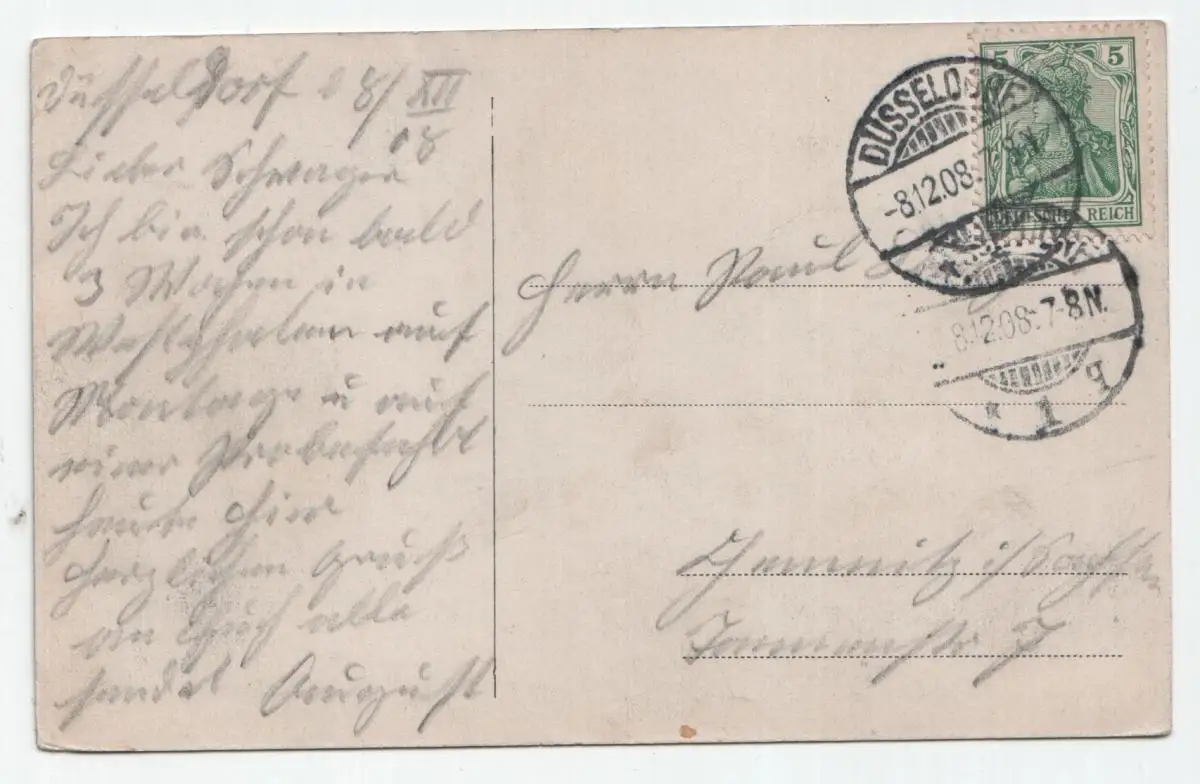 Düsseldorf d 8/XII
08
Lieber Schwager
Ich bin schon bald
3 Wochen in
Westphalen auf
Montage u auf
einer Probefahrt
heute hier
Herzlichen Gruß
an Euch alle
sendet August
Herrn Paul
Chemnitz i/Sachsen
7
5 5
DEUTSCHES REICH
DÜSSELDORF
-8.12.08.
8.12.08. 7-8N.
* 1 q